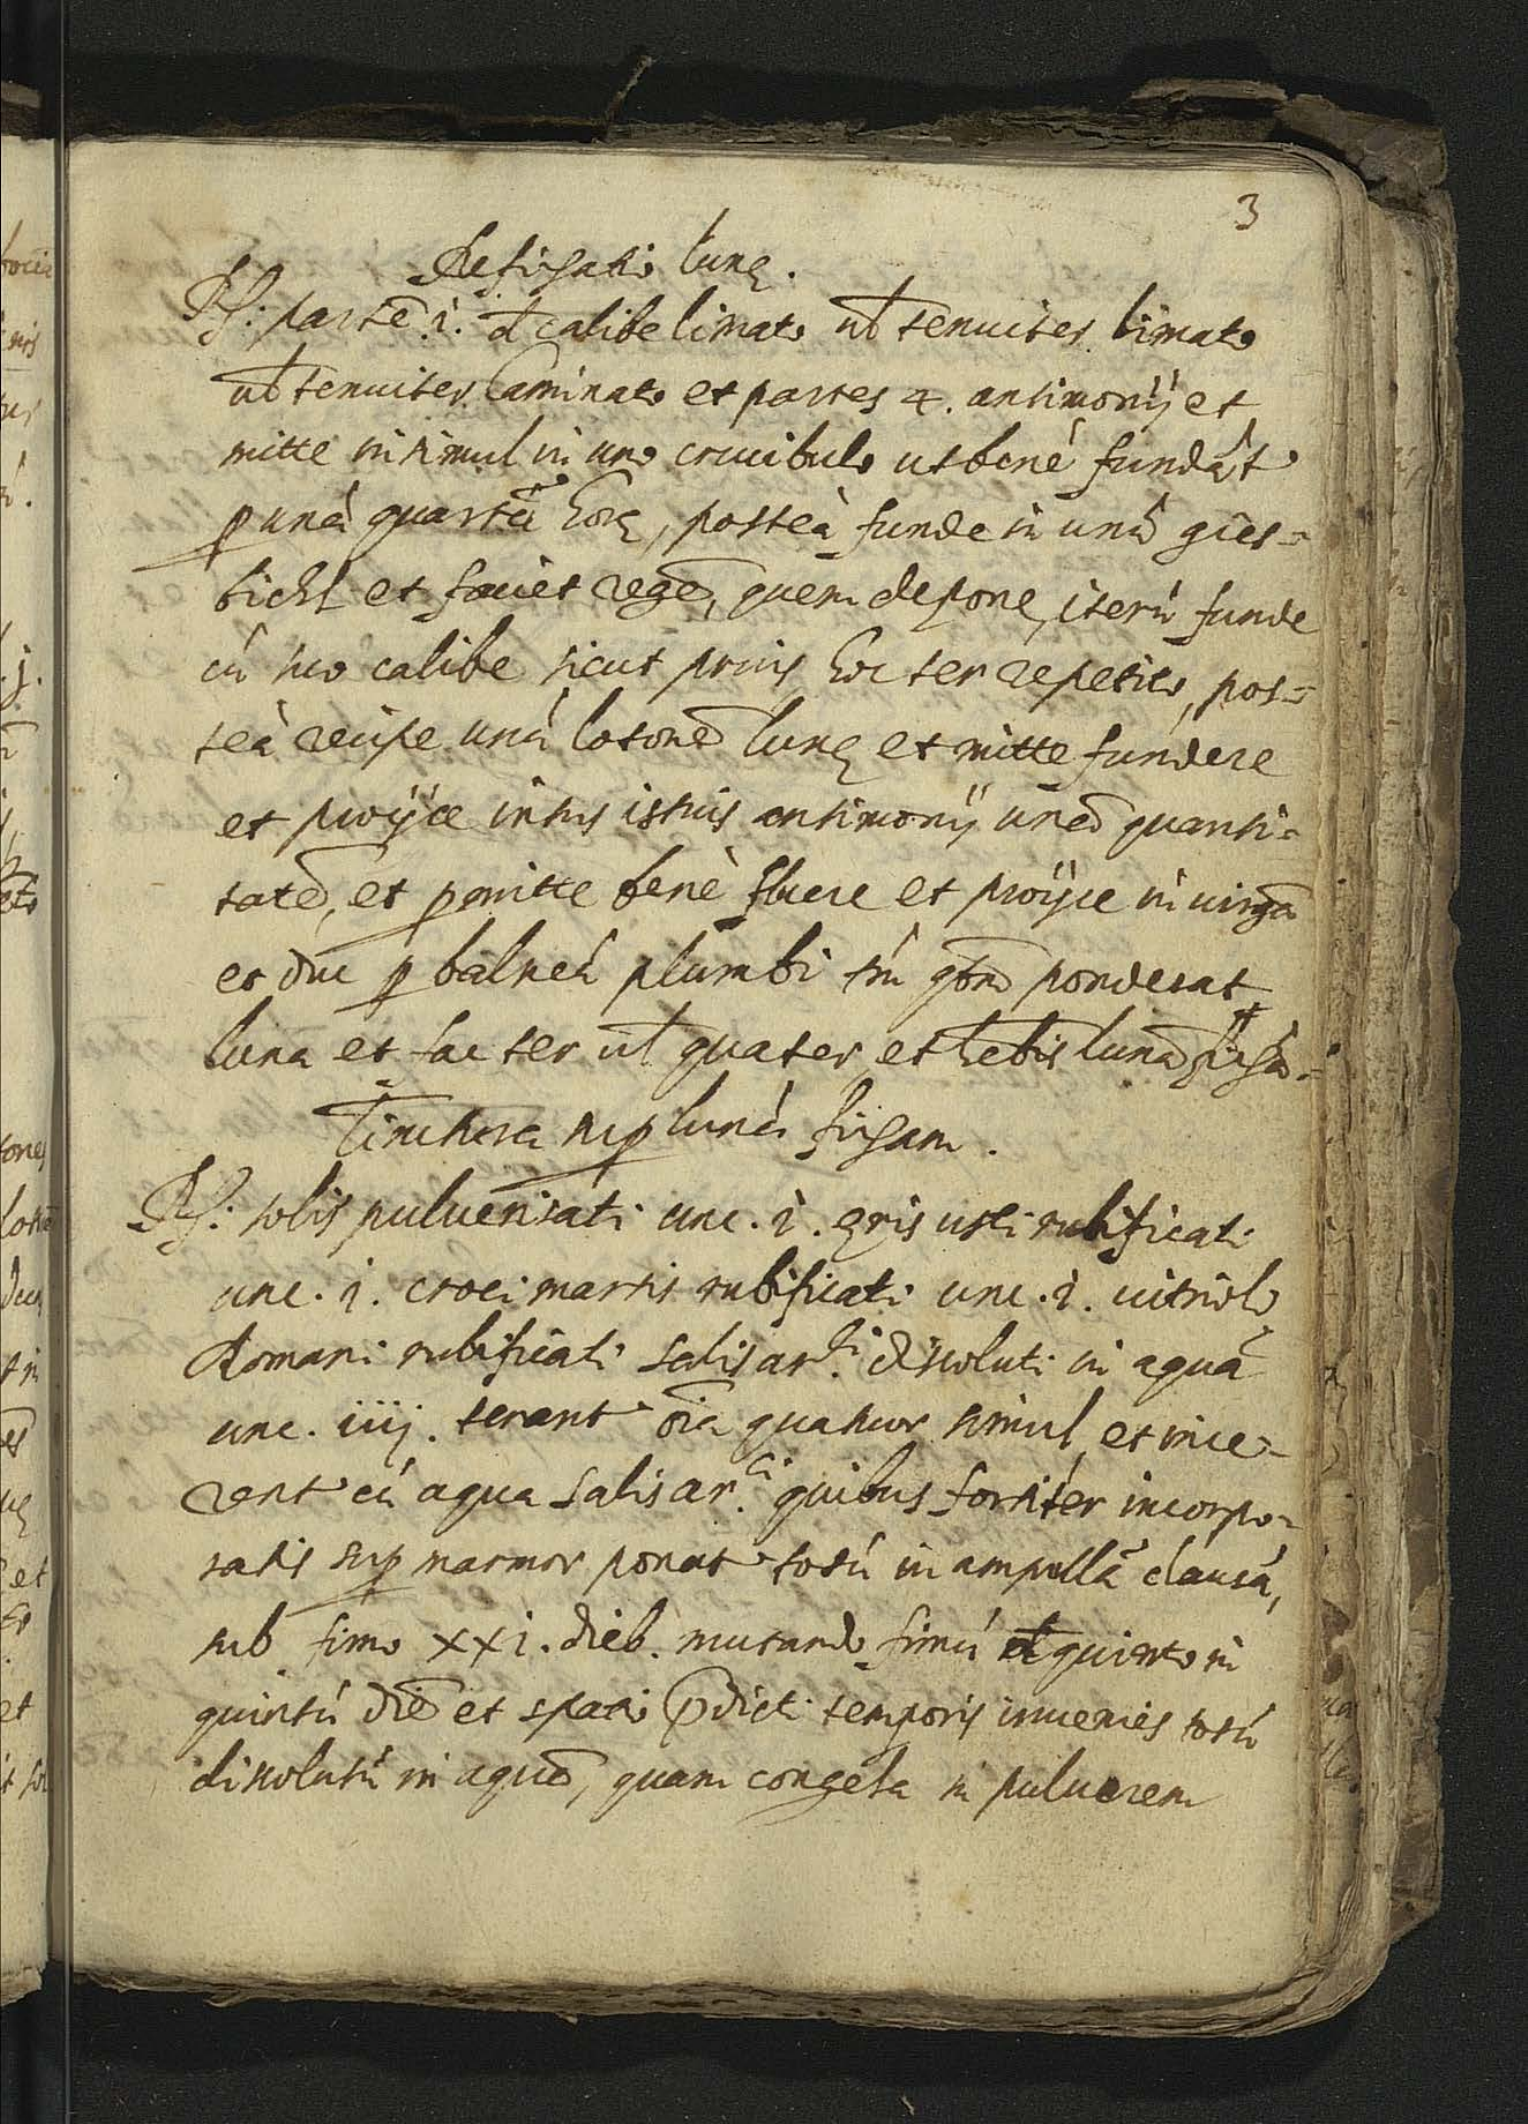 3
De fixatio lunę.
Rx: partē i. d calibe limato ul tenuiter limato
ul tenuiter laminato et partes 4. antimonij et
mitte in simul in uno crucibulo ut benè fundāt
p unā quartā horę, posteà funde in unā gies=
bichl et faciet regē, quem depone, iterū funde
cū suo calibe sicut prius hoc ter repetito, pos=
teà recipe unā lotonē lunę et mitte fundere
et proijce intus istius antimonij unā quanti=
tatē, et pmitte benè fluere et proijce in uirgā
et duc p balneū plumbi tm̄ qtm̄ ponderat
luna et fac ter ul quater et hēbis lunā fixā.
Tinctura sup lunā fixam.
Rx: solis puluerisati unc. i. ęris usti rubificati
unc. i. croci martis rubificati unc. i. uitrioli
Romani rubificati salis ar.ci dissoluti in aquā
unc. iiij. terant oīa quatuor simul et ince=
rent cū aqua salis ar.ci quibus fortiter incorpo=
ratis sup marmor ponat totū in ampullā clausā,
sub fimo xxi. dieb. mutando fimū d quinto in
quintū diē et spatio pdicti temporis inuenies totū
dissolutū in aquā, quam congela in puluerem